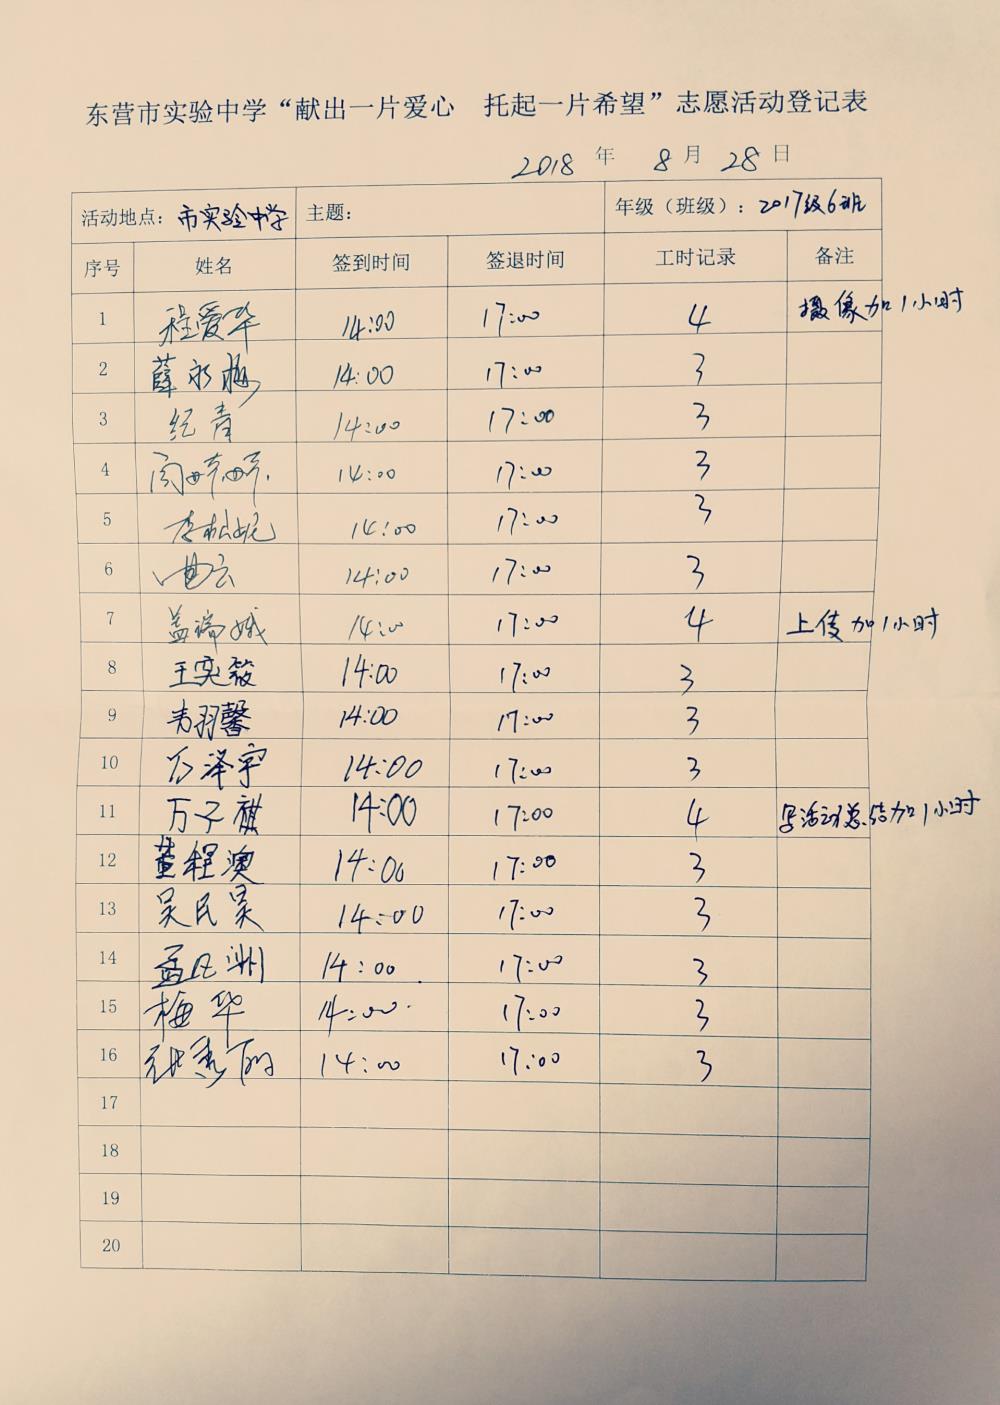 东营市实验中学“献出一片爱心 托起一片希望”志愿活动登记表
2018 年 8 月 28 日
活动地点：市实验中学 主题： 年级（班级）：2017级6班
序号 姓名 签到时间 签退时间 工时记录 备注
1 程爱华 14:00 17:00 4 摄像加1小时
2 薛永梅 14:00 17:00 3
3 纪青 14:00 17:00 3
4 14:00 17:00 3
5 李松妮 14:00 17:00 3
6 曲云 14:00 17:00 3
7 盖 娥 14:0 17:00 4 上传加1小时
8 王奕璇 14:00 17:00 3
9 韦羽馨 14:00 17:00 3
10 石泽宇 14:00 17:00 3
11 万子麒 14:00 17:00 4 写活动总结加1小时
12 董程澳 14:00 17:00 3
13 吴民昊 14:00 17:00 3
14 孟凡洲 14:00 17:00 3
15 梅华 14:00 17:00 3
16 秀丽 14:00 17:00 3
17
18
19
20